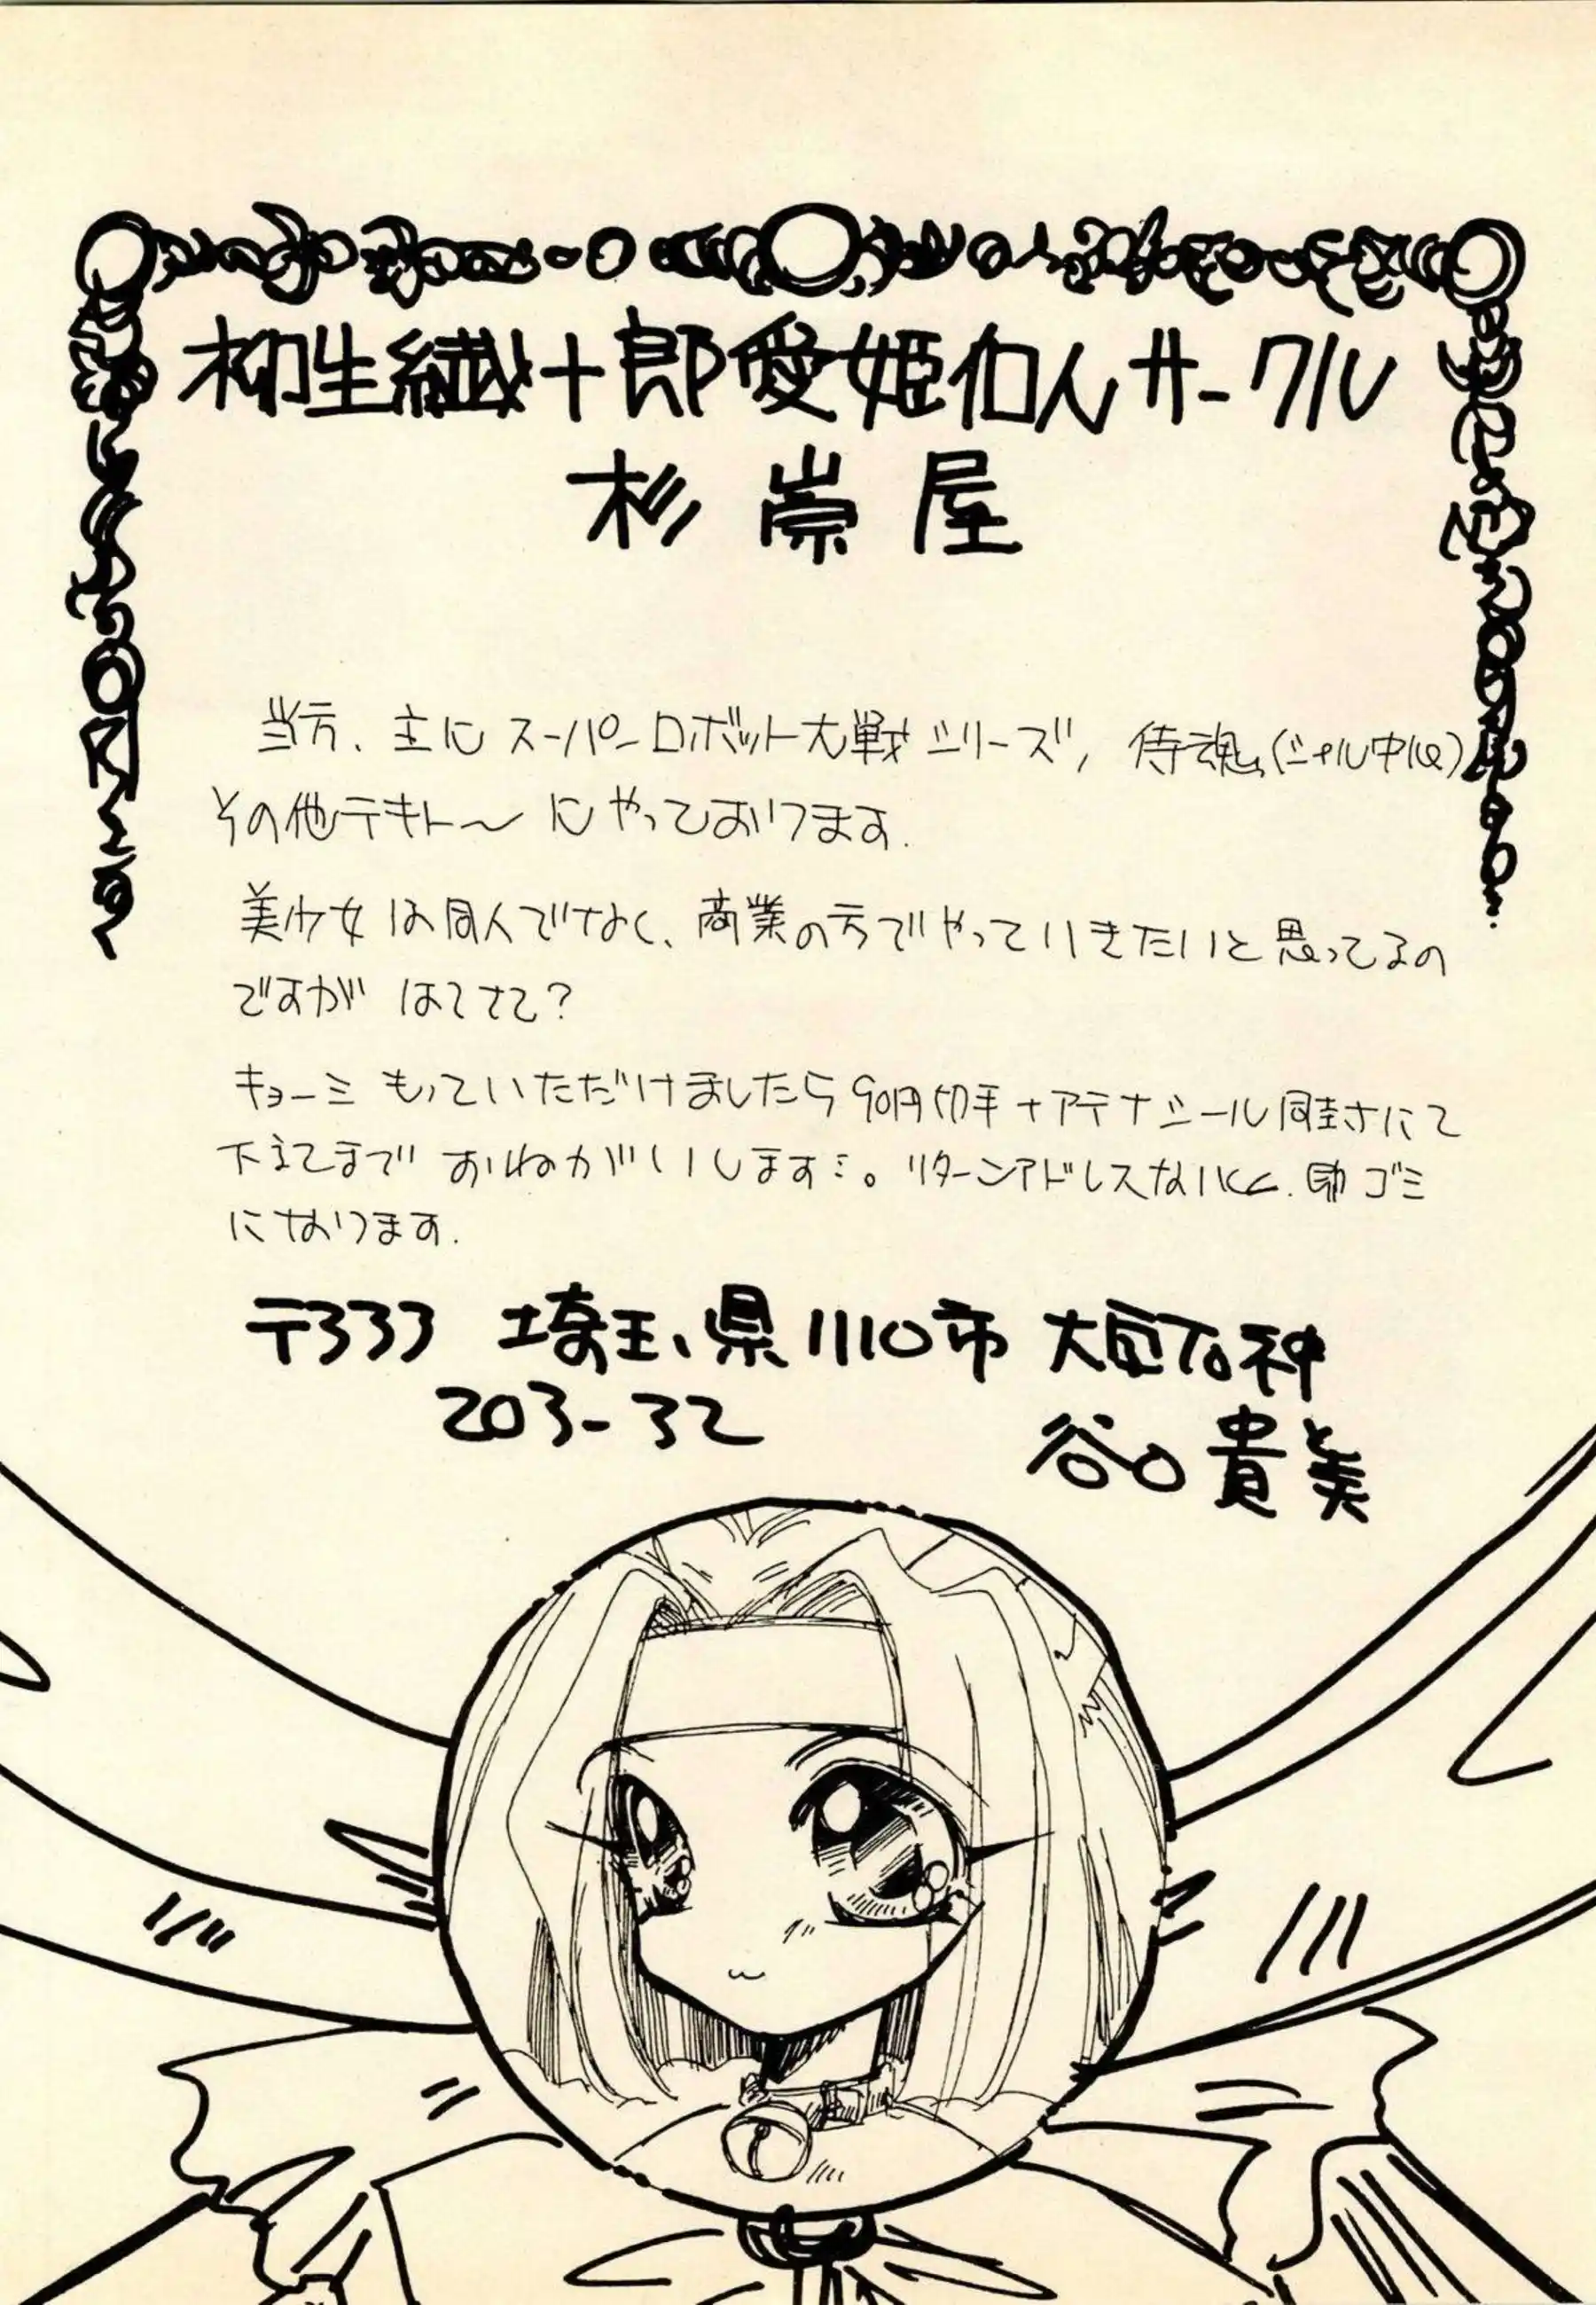 柳生繊十郎愛姫伯人サークル
杉崇屋
当方、主にスーパーロボット大戦シリーズ、侍魂(シャル中心)
その他テキト〜にやっております.
美少女は同人でなく、商業の方でやっていきたいと思ってるの
ですが はてさて?
キョーミもっていただけましたら90円切手+アテナシール同封にて
下記まで おねがいします。リターンアドレスないと、即ゴミ
になります.
〒333 埼玉県川口市
203-32 谷口貴美